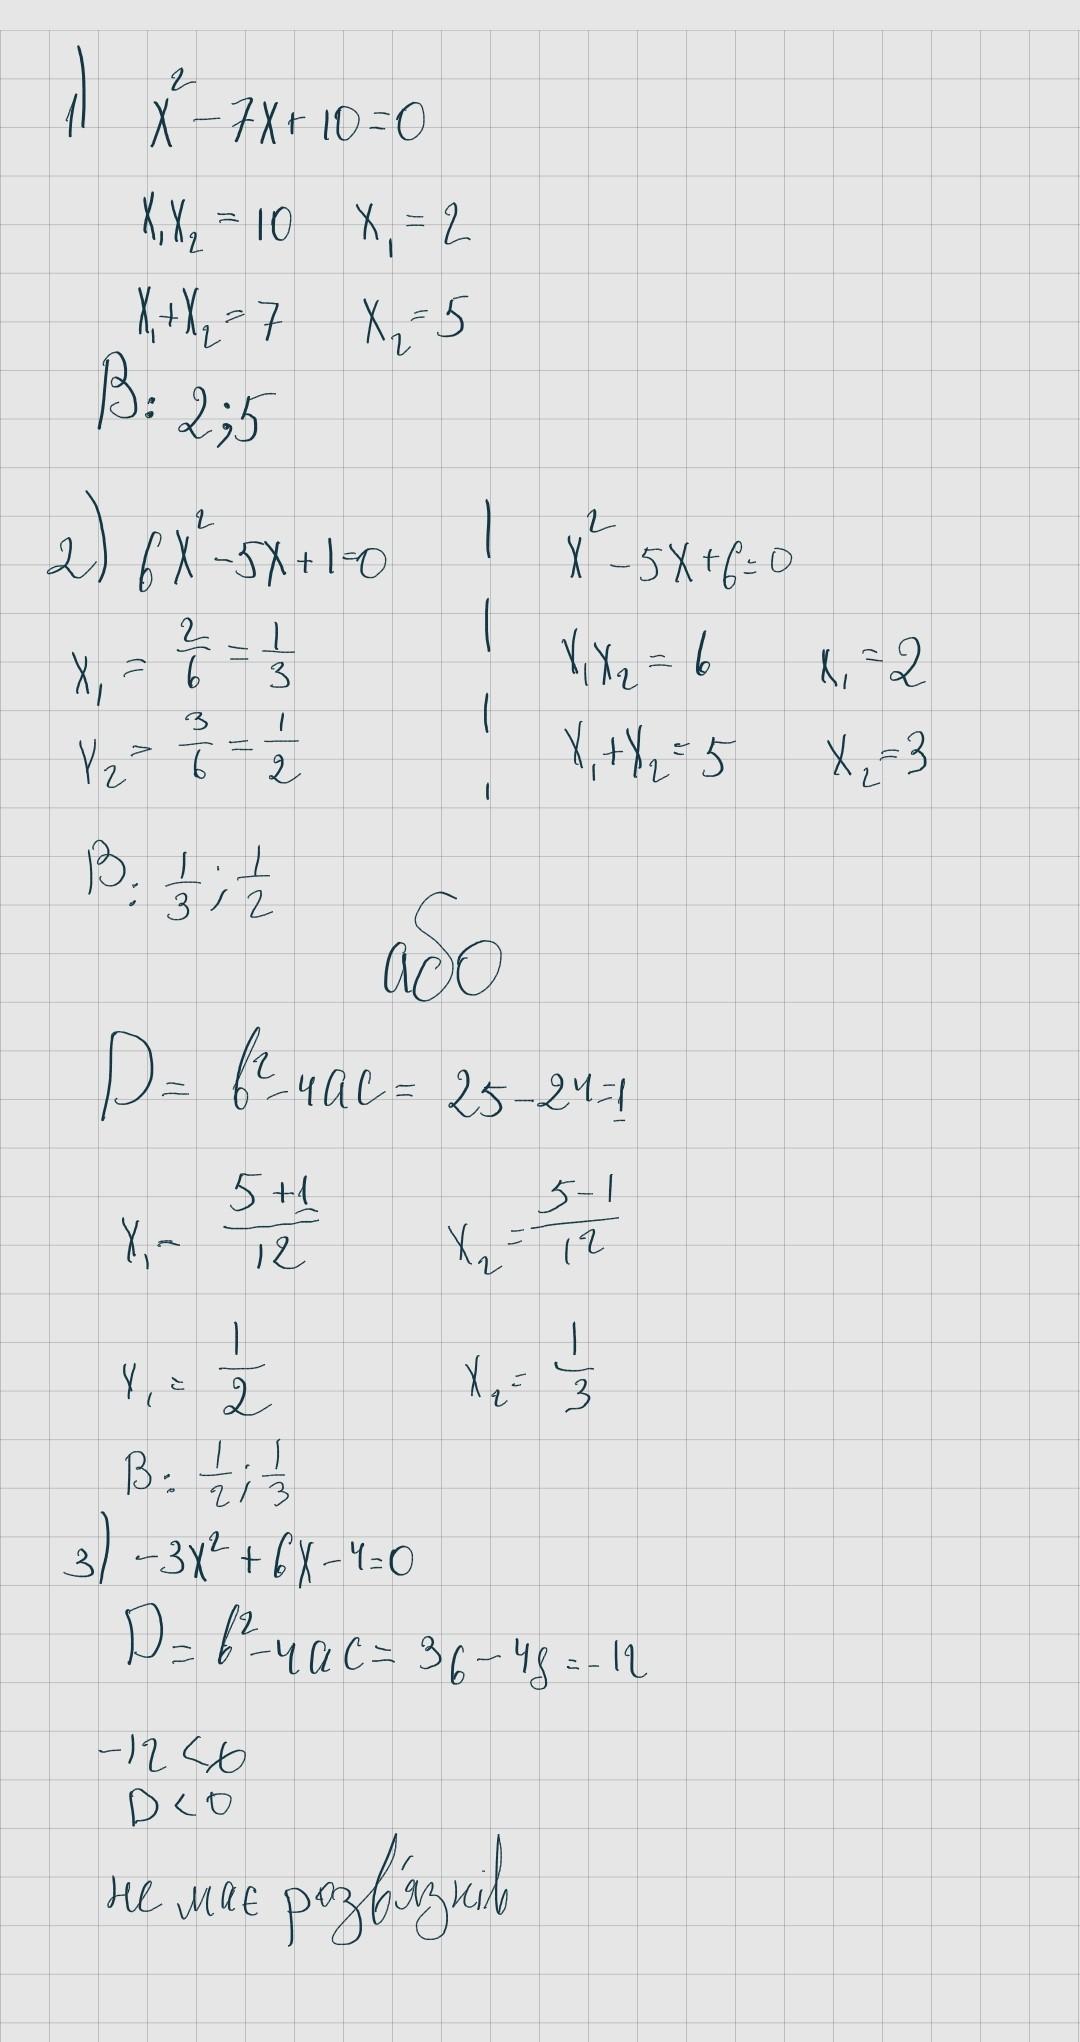 1) x² - 7x + 10 = 0
x₁x₂ = 10 x₁ = 2
x₁ + x₂ = 7 x₂ = 5
В: 2;5
2) 6x² - 5x + 1 = 0 | x² - 5x + 6 = 0
x₁ = 2/6 = 1/3 | x₁x₂ = 6 x₁ = 2
x₂ = 3/6 = 1/2 | x₁ + x₂ = 5 x₂ = 3
В: 1/3 ; 1/2
або
D = b² - 4ac = 25 - 24 = 1
x₁ = (5 + 1)/12 x₂ = (5 - 1)/12
x₁ = 1/2 x₂ = 1/3
В: 1/2 ; 1/3
3) -3x² + 6x - 4 = 0
D = b² - 4ac = 36 - 48 = -12
-12 < 0
D < 0
не має розв'язків